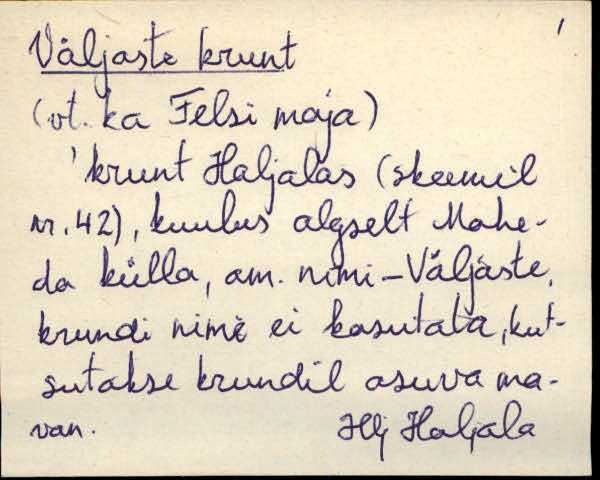 1
Väljaste krunt
(vt. ka Felsi maja)
'krunt Haljalas (skeemil
nr. 42), kuulus algselt Mahe-
da külla, am. nimi - Väljaste,
krundi nime ei kasutata, kut-
sutakse krundil asuva ma-
van.
Hlj Haljala